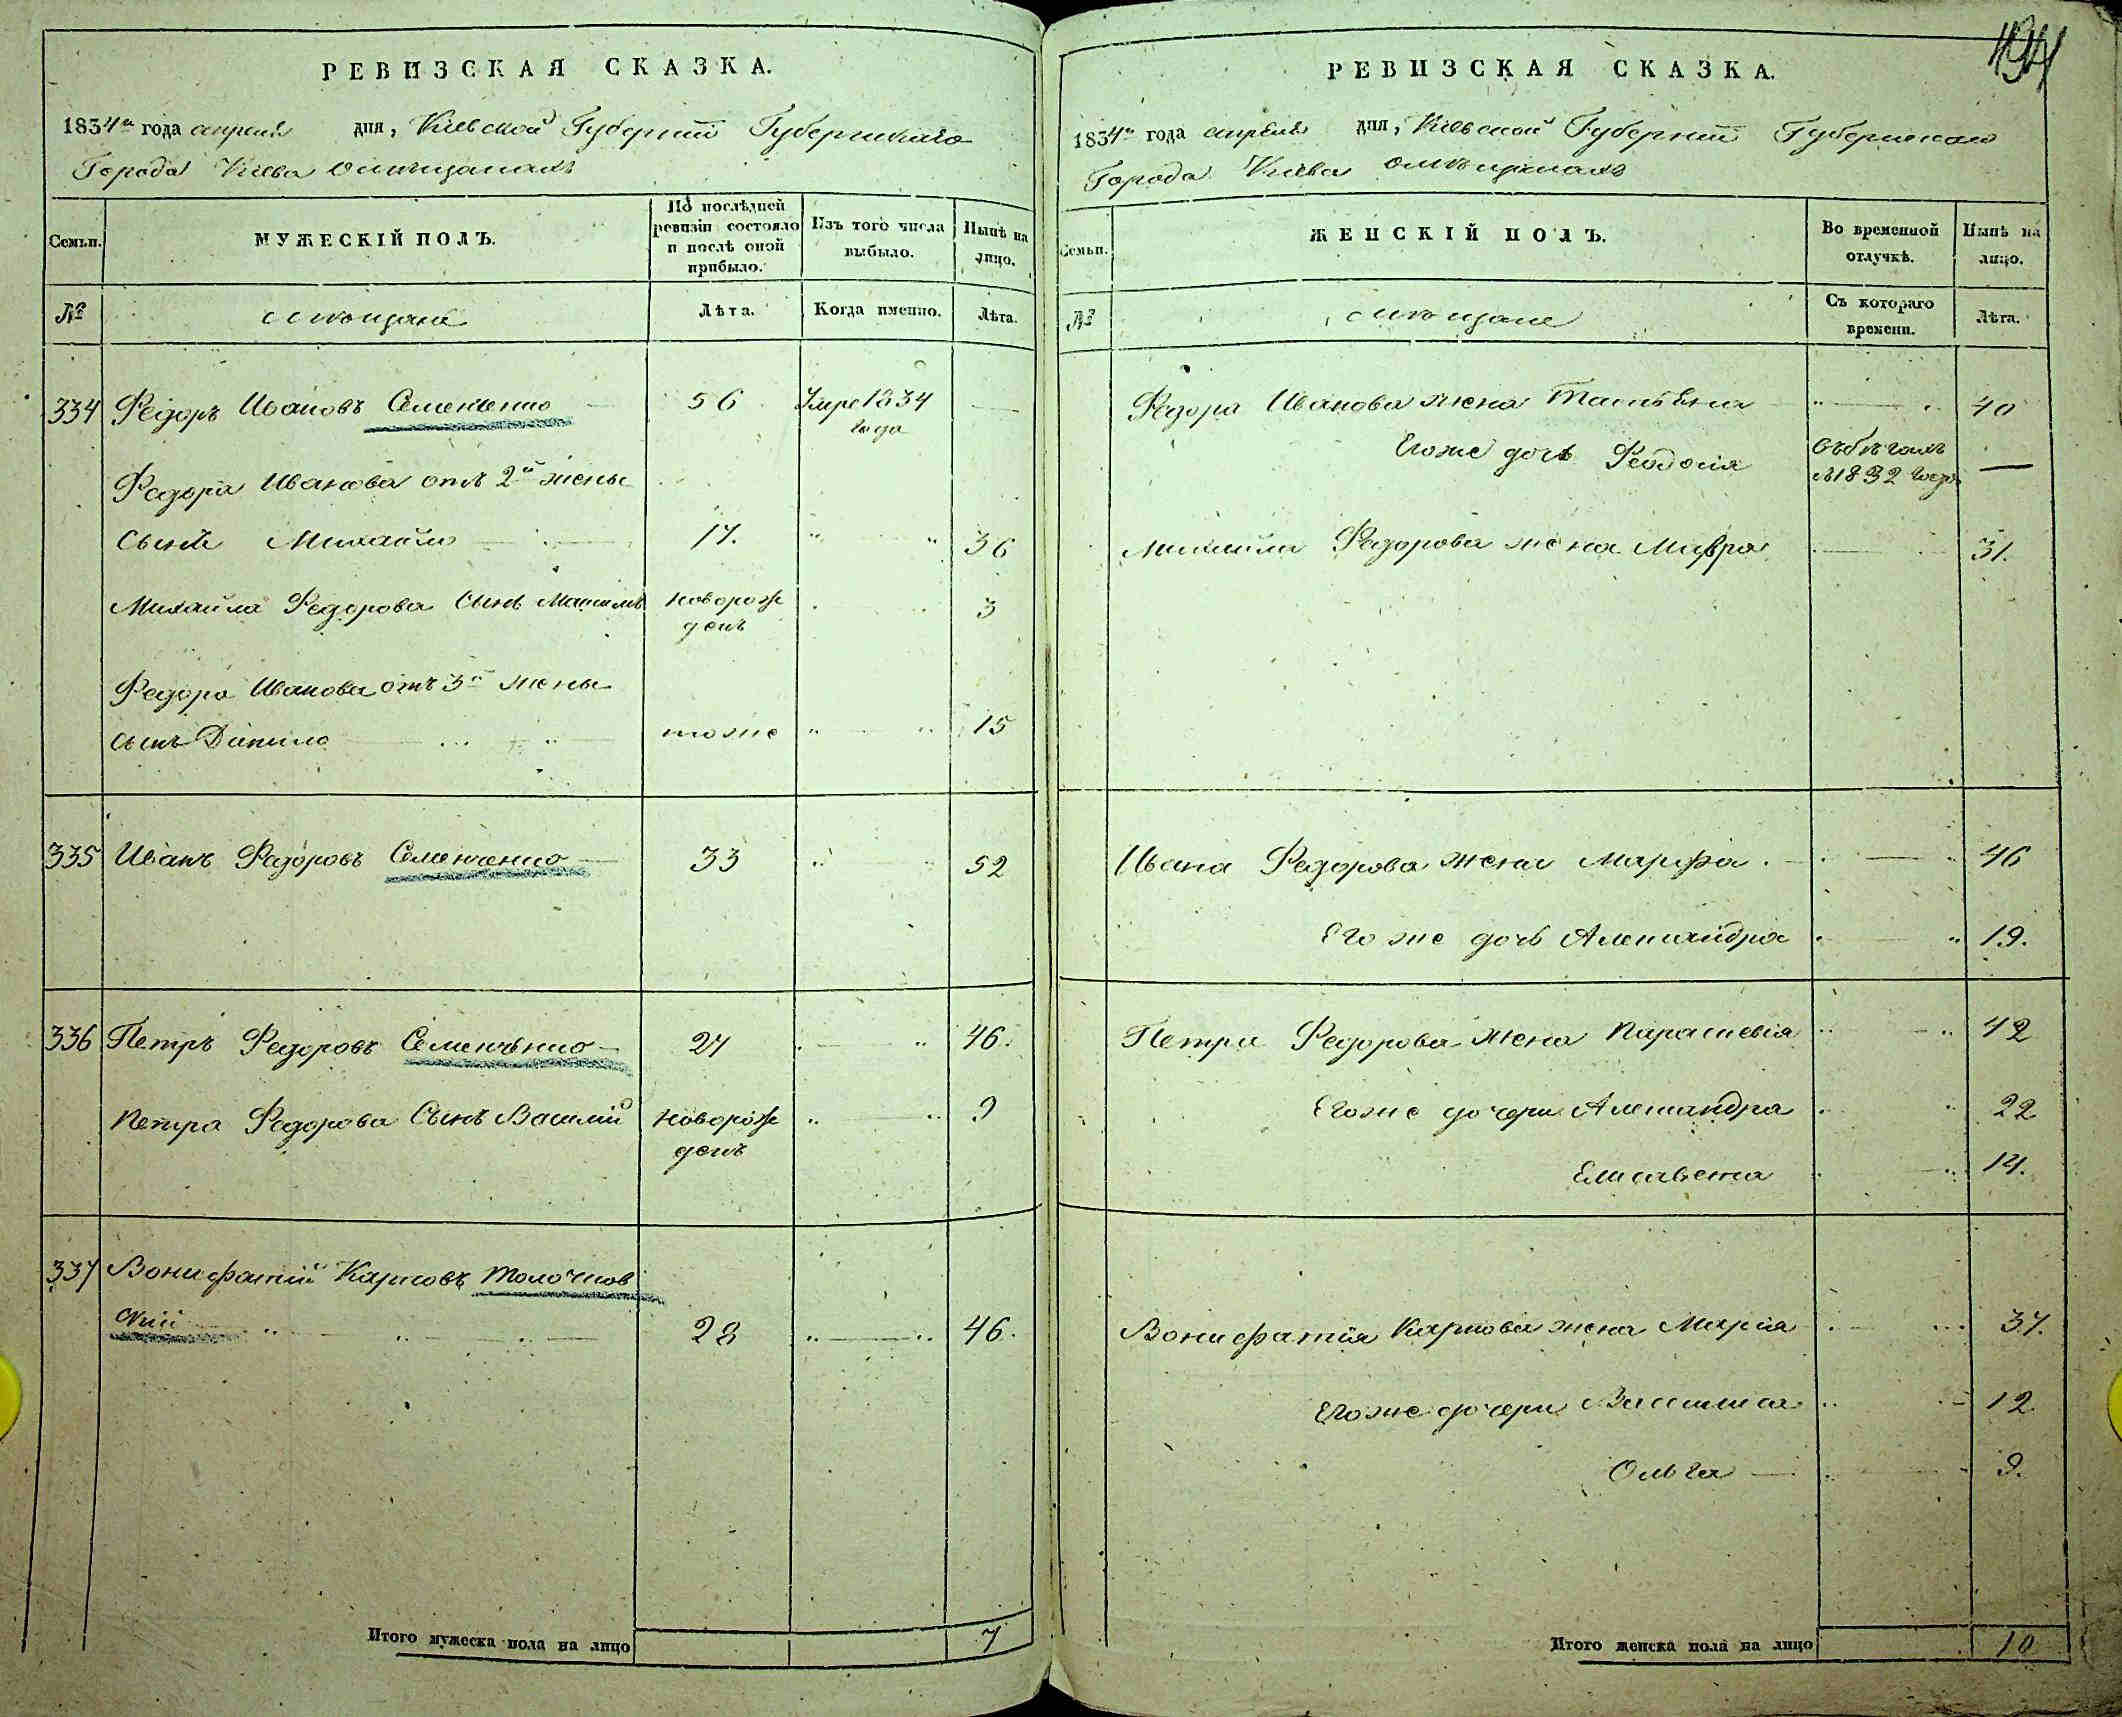 РЕВИЗСКАЯ СКАЗКА.
1834го года апреля дня, Киевской Губернии Губернскаго
Города Киева о мещанахъ
Семьи.
МУЖЕСКІЙ ПОЛЪ.
По послѣдней
ревизіи состояло
и послѣ оной
прибыло.
Изъ того числа
выбыло.
Нынѣ на
лицо.
№
мещане
Лѣта.
Когда именно.
Лѣта.
334 Федоръ Ивановъ Семененко 56 Умре 1834 —
года
Федора Иванова отъ 2й жены
сынъ Михайло 17. 36
Михайла Федорова сынъ Максимъ новорож 3
денъ
Федора Иванова отъ 3й жены
сынъ Данило тоже 15
335 Иванъ Федоровъ Семененко 33 52
336 Петръ Федоровъ Семененко 27 46.
Петра Федорова Сынъ Василій новорож 9
денъ
337 Вонифатій Карповъ Толочков
скій 28 46.
Итого мужеска пола на лицо 7
РЕВИЗСКАЯ СКАЗКА.
1834го года апреля дня, Киевской Губернии Губернскаго
Города Киева о мещанахъ
Семьи.
ЖЕНСКІЙ ПОЛЪ.
Во временной
отлучкѣ.
Нынѣ на
лицо.
№
мещане
Съ котораго
времени.
Лѣта.
Федора Иванова жена Татьяна 40
Его же дочь Феодосія въ бѣгахъ
съ 1832 года —
Михайла Федорова жена Мавра 31.
Ивана Федорова жена Марфа 46
Его же дочь Александра 19.
Петра Федорова жена Параскевія 42
Его же дочери Александра 22
Елисавета 14.
Вонифатія Карпова жена Марія 37.
Его же дочери Василиса 12
Ольга 9.
Итого женска пола на лицо 10